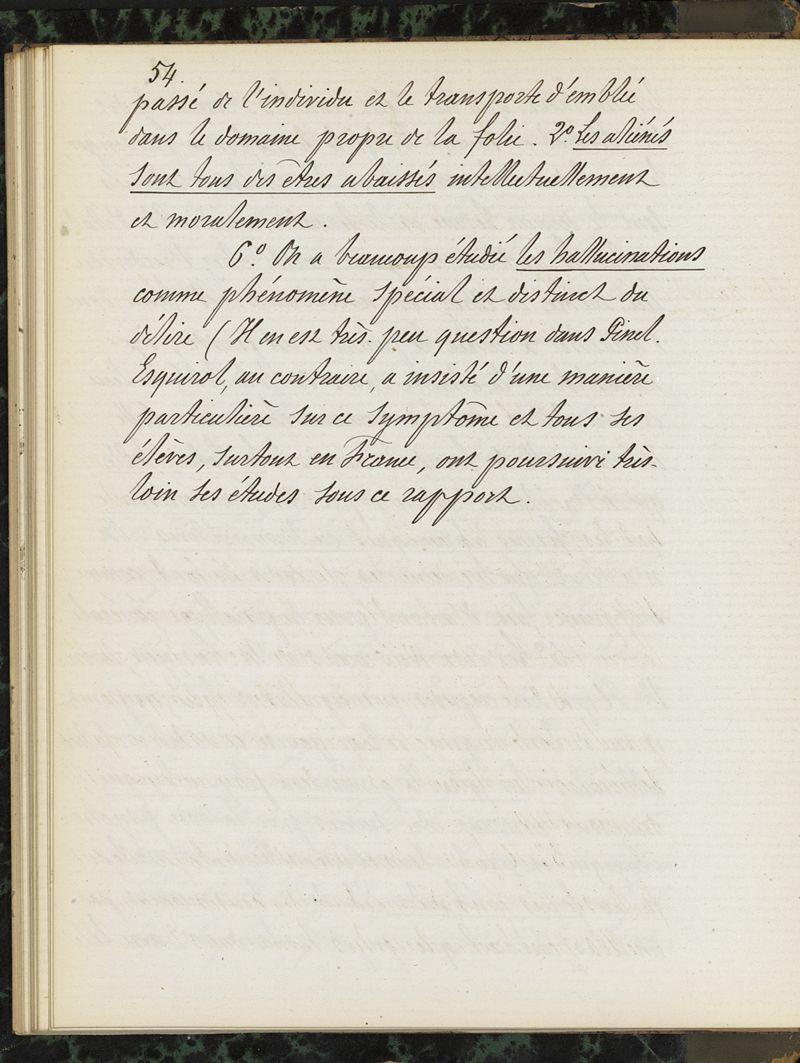 54.
passé de l'individu et le transporte d'emblée
dans le domaine propre de la folie. 2º. Les aliénés
sont tous des êtres abaissés intellectuellement
et moralement.
6º. On a beaucoup étudié les hallucinations
comme phénomène spécial et distinct du
délire (Il en est très-peu question dans Pinel.
Esquirol, au contraire, a insisté d'une manière
particulière sur ce symptôme et tous ses
élèves, surtout en France, ont poursuivi très-
loin ses études sous ce rapport.